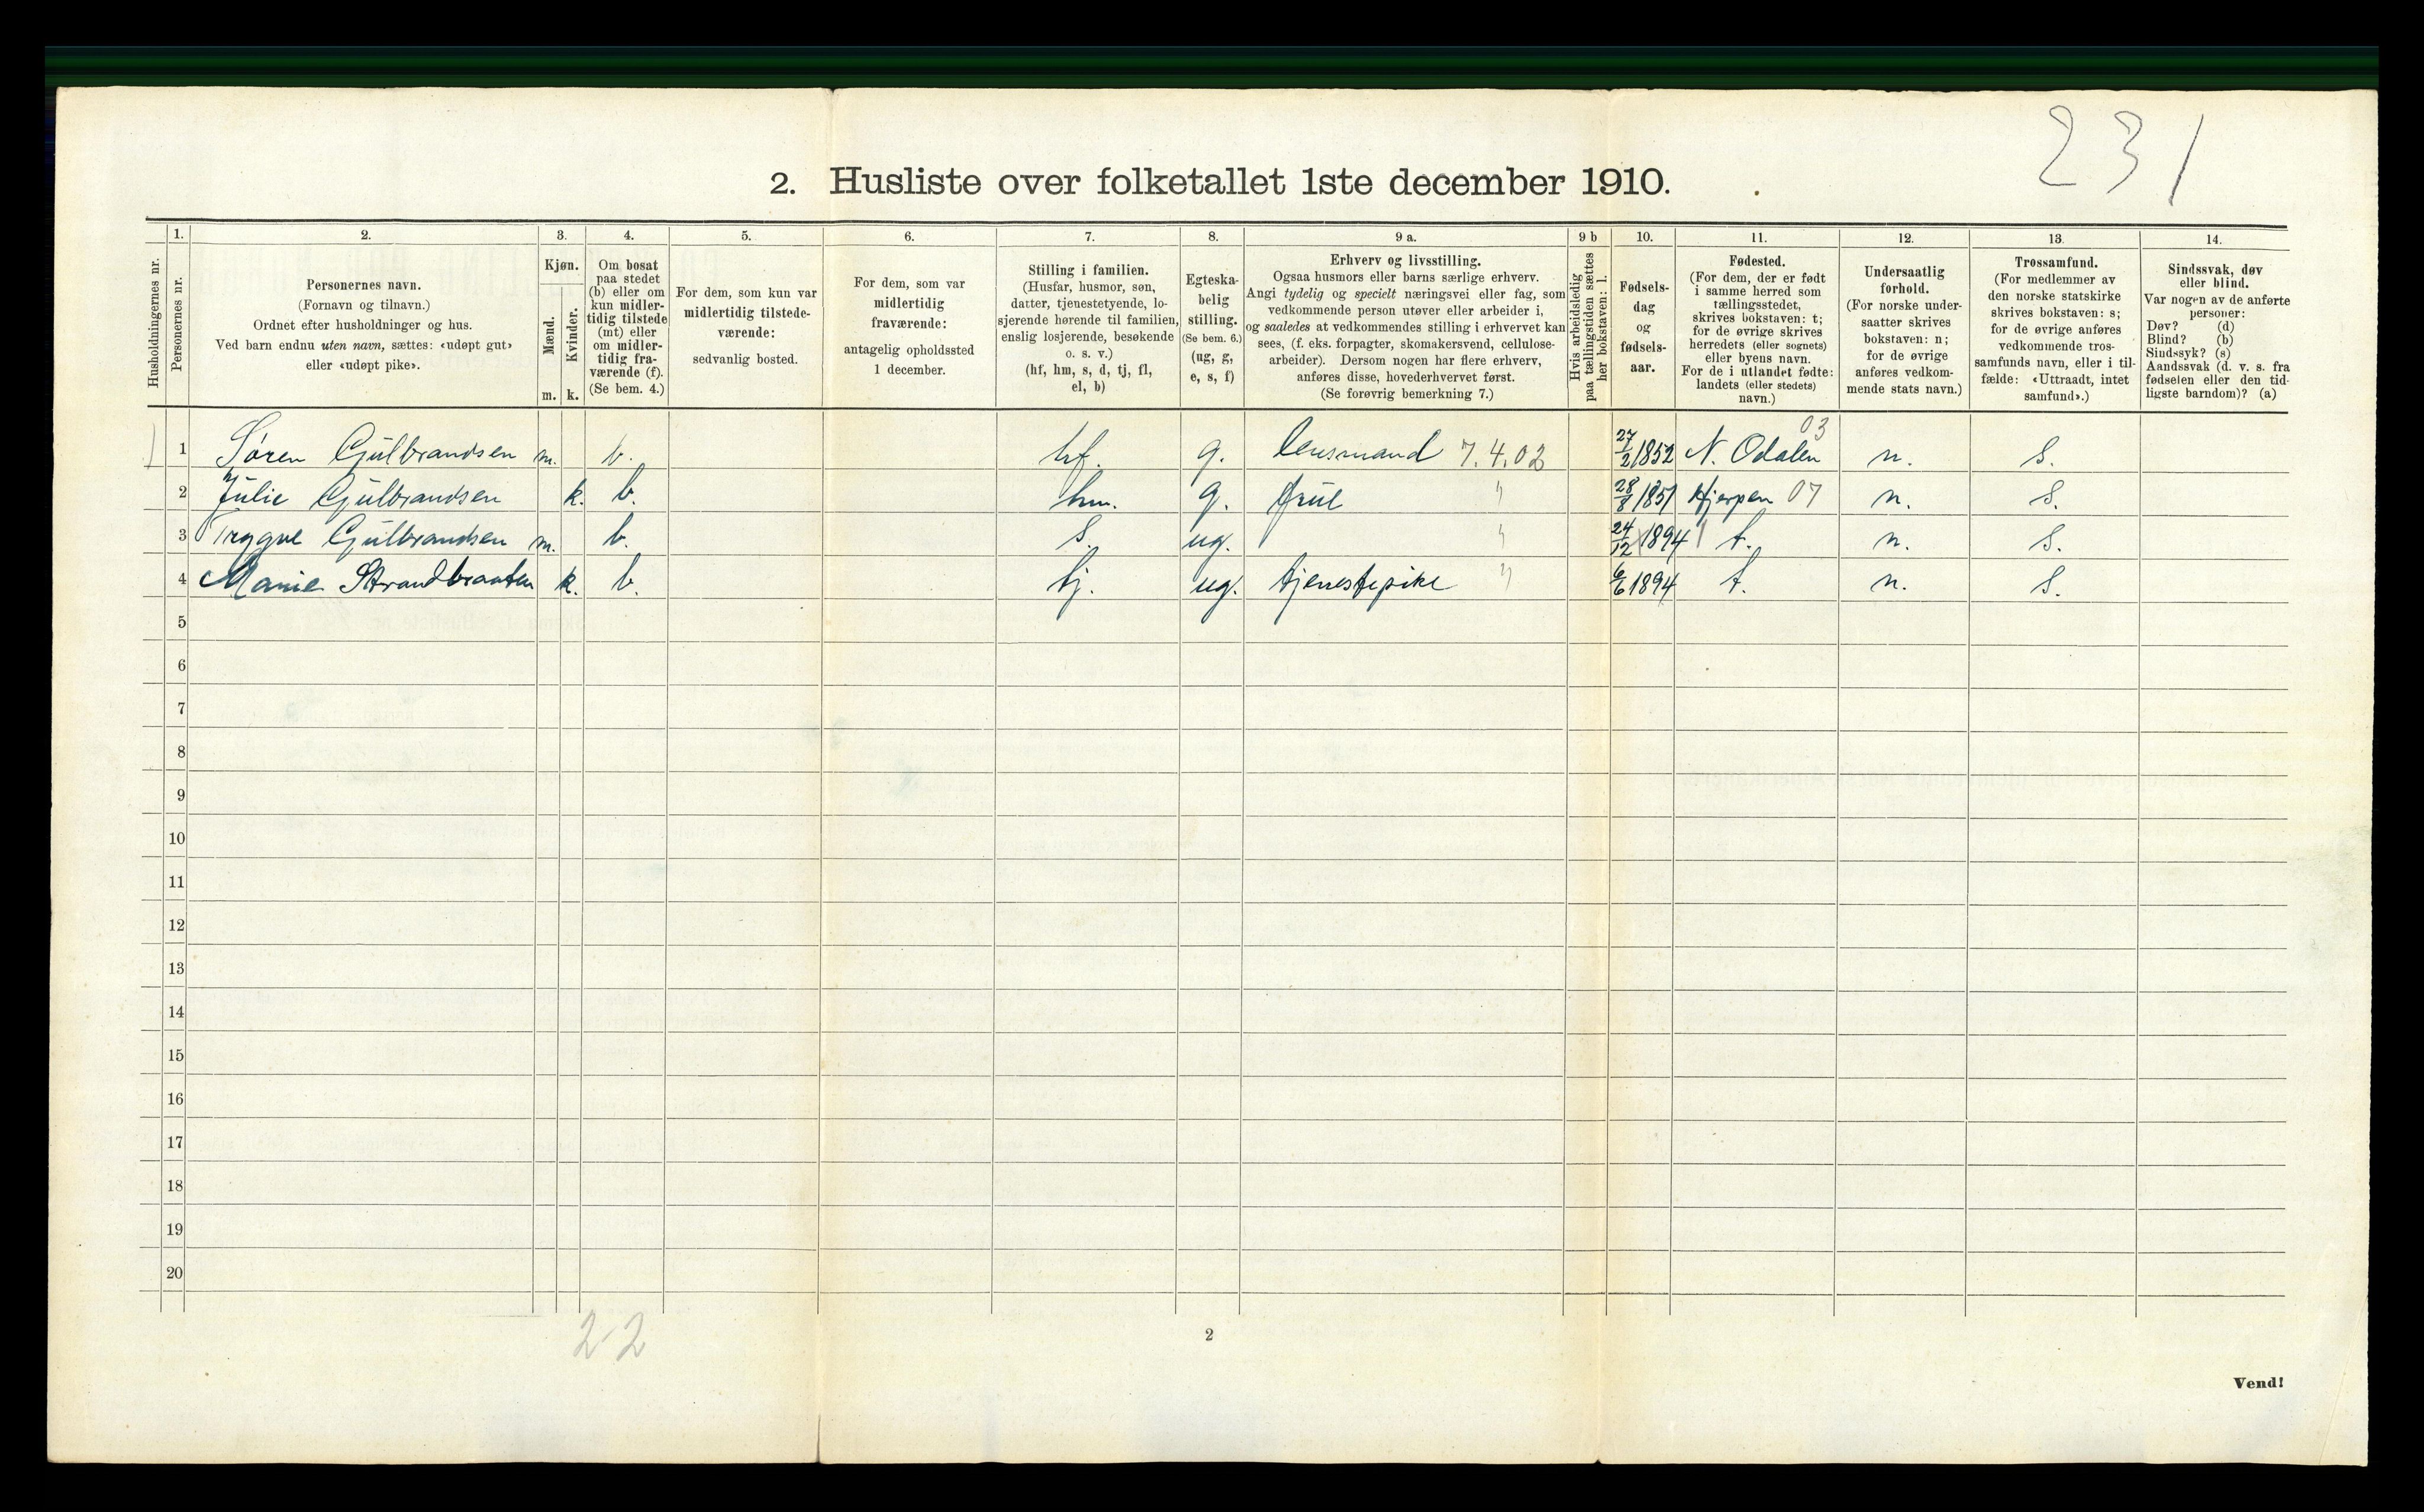 231
2. Husliste over folketallet 1ste december 1910.
Husholdningernes nr.
1.
Personernes nr.
2.
Personernes navn.
(Fornavn og tilnavn.)
Ordnet efter husholdninger og hus.
Ved barn endnu uten navn, sættes: «udøpt gut»
eller «udøpt pike».
3.
Kjøn.
Mænd.
Kvinder.
m. k.
4.
Om bosat
paa stedet
(b) eller om
kun midler-
tidig tilstede
(mt) eller
om midler-
tidig fra-
værende (f).
(Se bem. 4.)
5.
For dem, som kun var
midlertidig tilstede-
værende:
sedvanlig bosted.
6.
For dem, som var
midlertidig
fraværende:
antagelig opholdssted
1 december.
7.
Stilling i familien.
(Husfar, husmor, søn,
datter, tjenestetyende, lo-
sjerende hørende til familien,
enslig losjerende, besøkende
o. s. v.)
(hf, hm, s, d, tj, fl,
el, b)
8.
Egteska-
belig
stilling.
(Se bem. 6.)
(ug, g,
e, s, f)
9 a.
Erhverv og livsstilling.
Ogsaa husmors eller barns særlige erhverv.
Angi tydelig og specielt næringsvei eller fag, som
vedkommende person utøver eller arbeider i,
og saaledes at vedkommendes stilling i erhvervet kan
sees, (f. eks. forpagter, skomakersvend, cellulose-
arbeider). Dersom nogen har flere erhverv,
anføres disse, hovederhvervet først.
(Se forøvrig bemerkning 7.)
9 b
Hvis arbeidsledig
paa tællingstiden sættes
her bokstaven: l.
10.
Fødsels-
dag
og
fødsels-
aar.
11.
Fødested.
(For dem, der er født
i samme herred som
tællingsstedet,
skrives bokstaven: t;
for de øvrige skrives
herredets (eller sognets)
eller byens navn.
For de i utlandet fødte:
landets (eller stedets)
navn.)
12.
Undersaatlig
forhold.
(For norske under-
saatter skrives
bokstaven: n;
for de øvrige
anføres vedkom-
mende stats navn.)
13.
Trossamfund.
(For medlemmer av
den norske statskirke
skrives bokstaven: s;
for de øvrige anføres
vedkommende tros-
samfunds navn, eller i til-
fælde: «Uttraadt, intet
samfund».)
14.
Sindssvak, døv
eller blind.
Var nogen av de anførte
personer:
Døv? (d)
Blind? (b)
Sindssyk? (s)
Aandssvak (d. v. s. fra
fødselen eller den tid-
ligste barndom)? (a)
1 1 Søren Gulbrandsen m. b. hf. g. lensmand 7.4.02 27/2 1852 N. Odalen 03 n. s.
2 Julie Gulbrandsen k. b. hm. g. frue " 28/8 1851 Hjerpen 07 n. s.
3 Trygve Gulbrandsen m. b. s. ug. " 24/12 1894 t. n. s.
4 Marie Strandbraaten k. b. tj. ug. tjenestepike " 6/6 1894 t. n. s.
5
6
7
8
9
10
11
12
13
14
15
16
17
18
19
20
2-2
2
Vend!